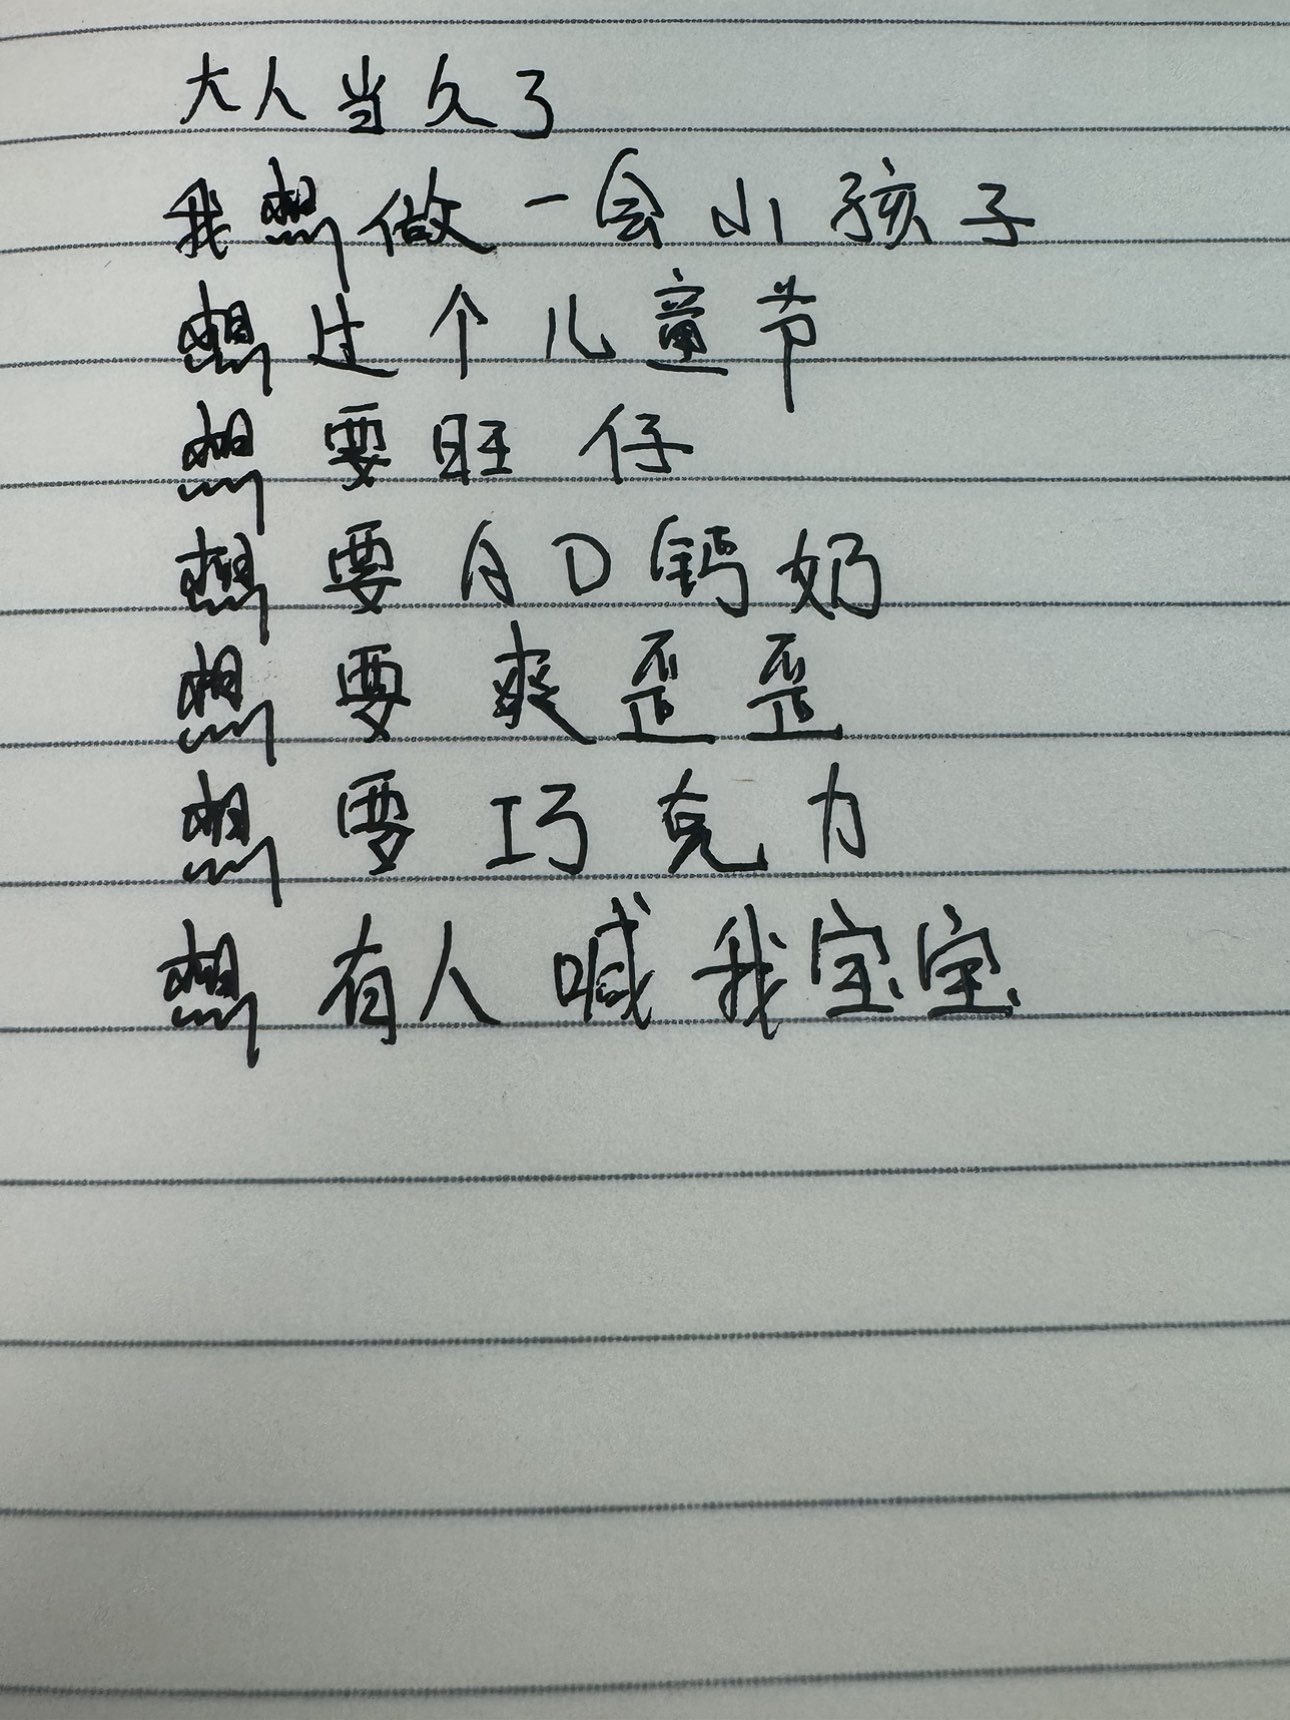 大人当久了
我想做一会小孩子
想过个儿童节
想要旺仔
想要AD钙奶
想要爽歪歪
想要巧克力
想有人喊我宝宝